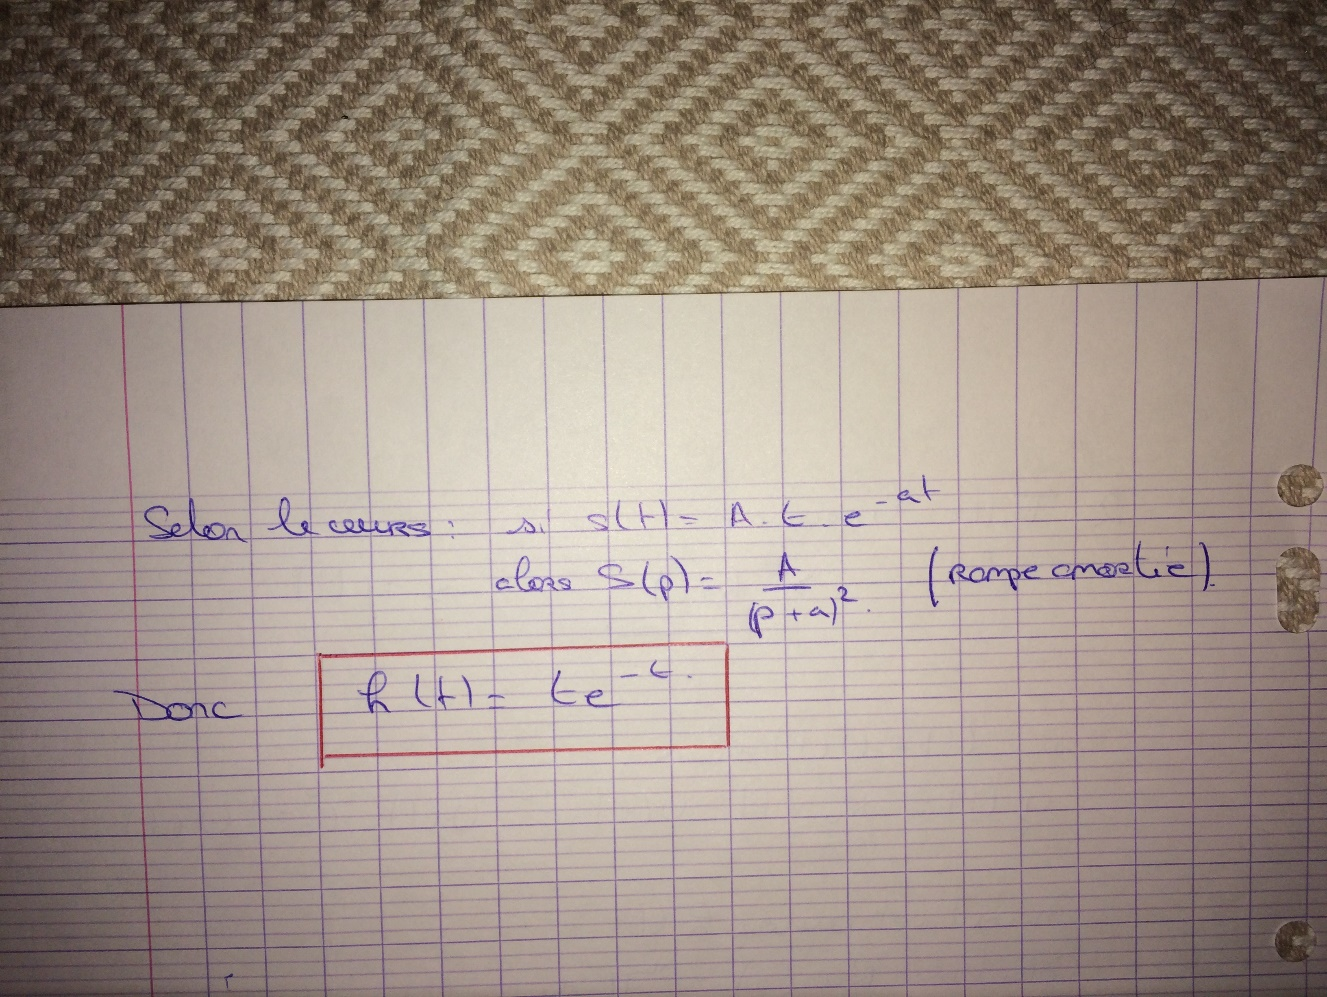 Selon le cours : si s(t) = A . t . e^{-at}
alors S(p) = \frac{A}{(p+a)^2} . (Rampe amortie).
Donc h(t) = te^{-t} .